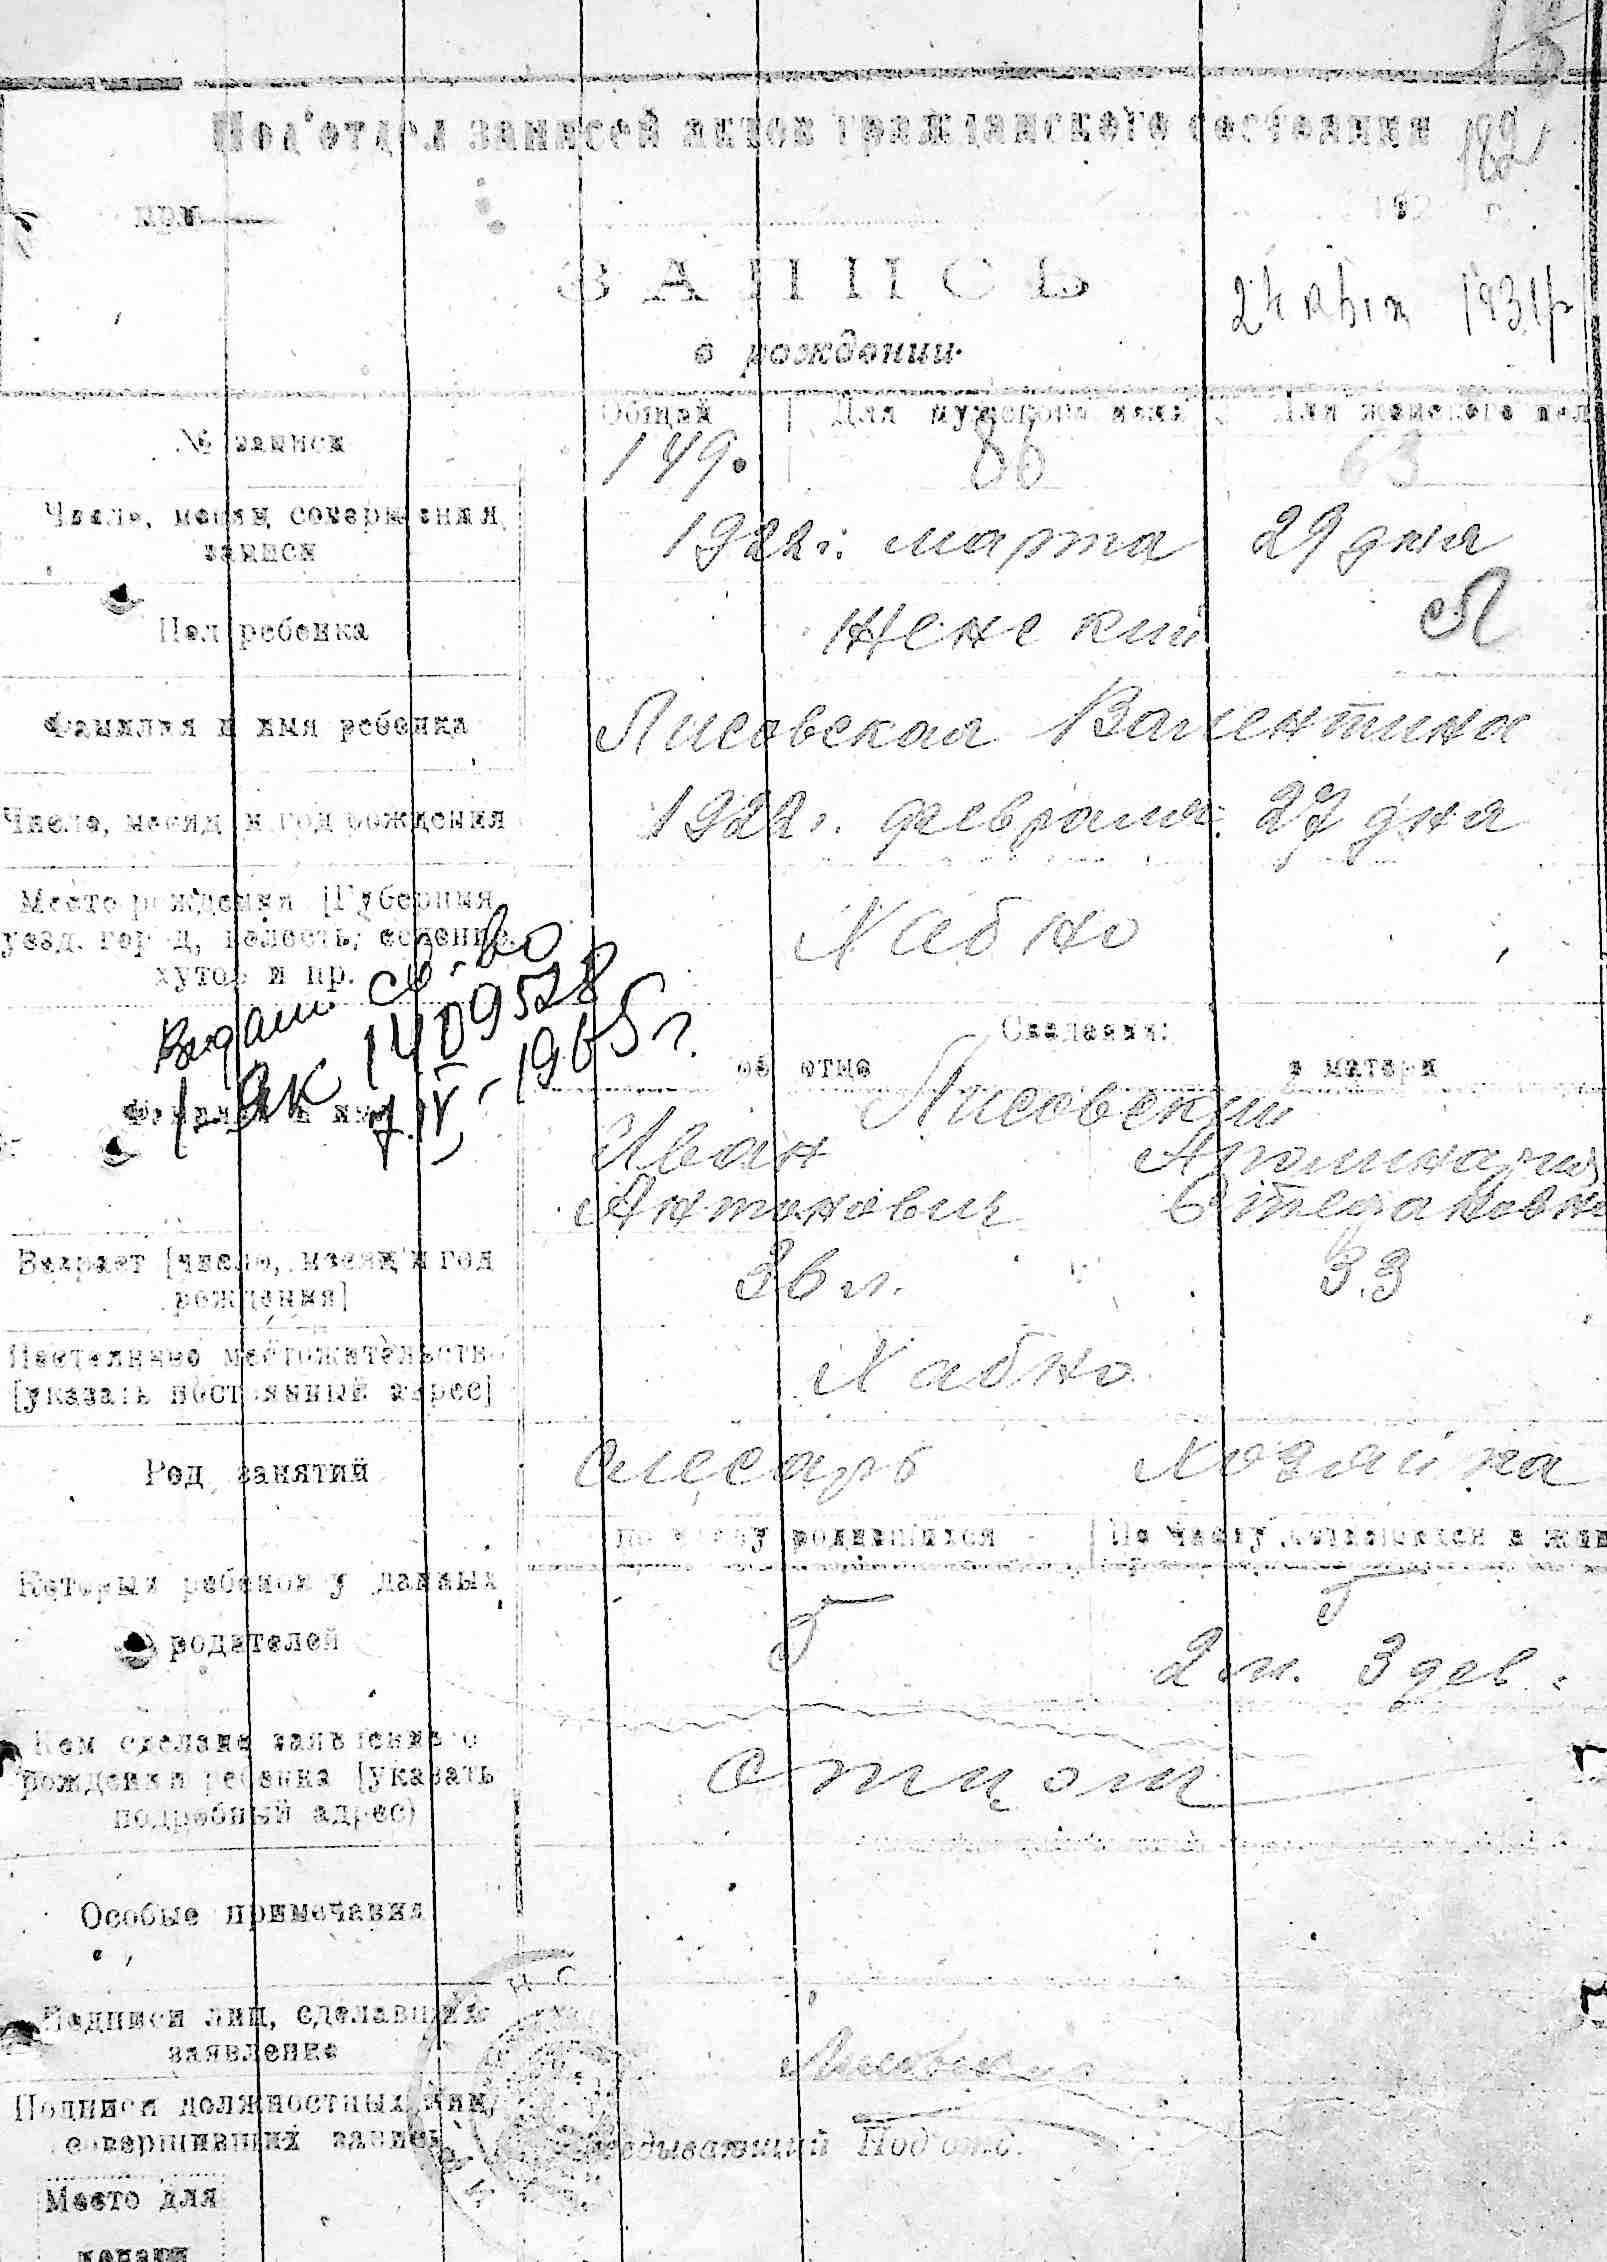 Под'отдел записей актов гражданского состояния
при
192 г.
ЗАПИСЬ
о рождении.
1931р
№ записи
Общий Для мужского пола Для женского пол
149. 86 63
Число, месяц совершения
записи
1922 г. марта 29 дня
Пол ребенка
Женский
Л
Фамилия и имя ребенка
Лисовская Валентина
Число, месяц и год рождения
1922 г. февраля 27 дня
Место рождения [Губерния
уезд, город, волость, селение
хутор и пр.
Хабно
Выдано св-во
I-ЯК 1409528
7.IV-1965 г.
Сведения:
об отце о матери
Фамилия и имя
Лисовский
Иван Аполинария
Антонович Стефановна
Возраст [число, месяц и год
рождения]
36 л. 33
Постоянное местожительство
[указать постоянный адрес]
Хабно
Род занятий
слесарь хозяйка
по числу родившихся По числу оставшихся в жив
Который ребенок у данных
родителей
5 5
2 м. 3 дев.
Кем сделано заявление о
рождении ребенка [указать
подробный адрес)
отцом
Особые примечания
Подписи лиц, сделавших
заявление
Подписи должностных лиц,
совершивших запись
Заведывающий Подотд.
Место для
печати